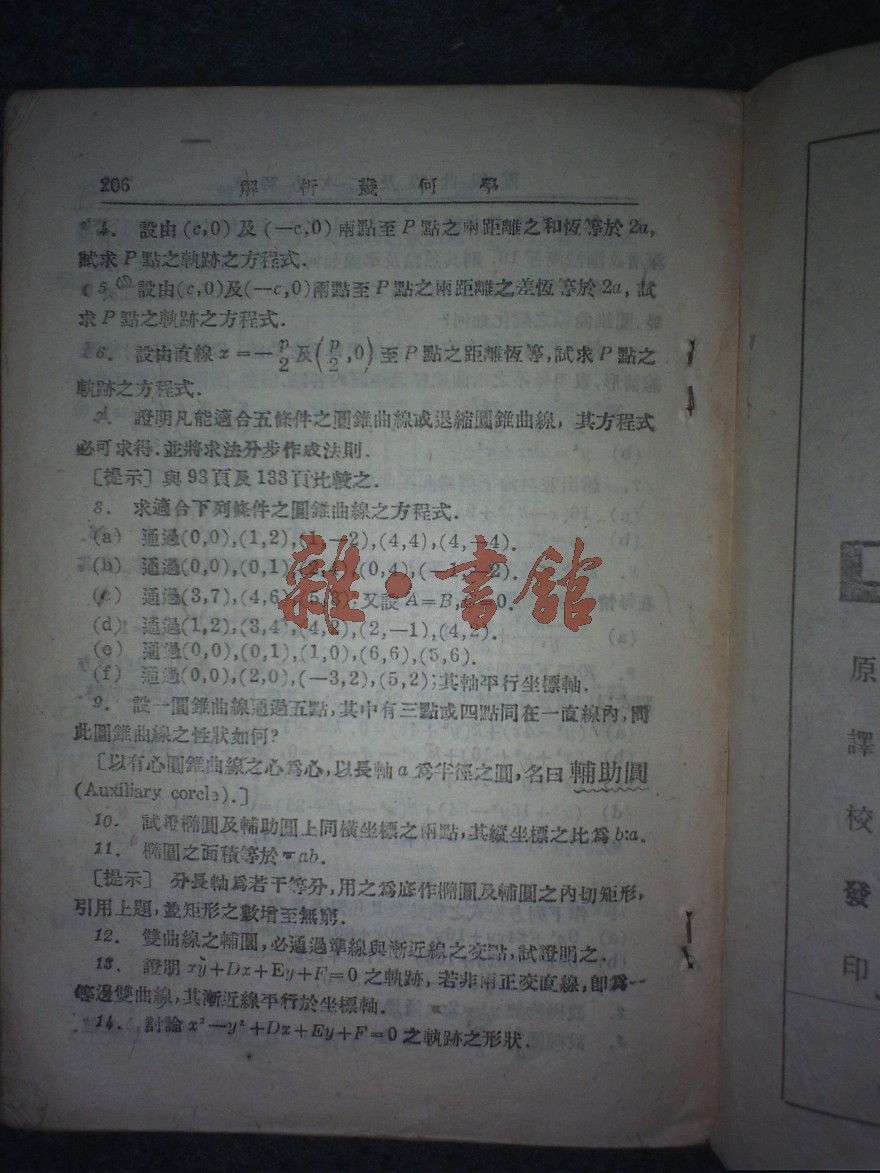 206 解析幾何學
4. 設由(c,0)及(—c,0)兩點至P點之兩距離之和恆等於2a,
試求P點之軌跡之方程式.
5. 設由(c,0)及(—c,0)兩點至P點之兩距離之差恆等於2a,試
求P點之軌跡之方程式.
6. 設由直線x=—p/2及(p/2,0)至P點之距離恆等,試求P點之
軌跡之方程式.
證明凡能適合五條件之圓錐曲線或退縮圓錐曲線,其方程式
必可求得.並將求法分步作成法則.
[提示]與93頁及133頁比較之.
8. 求適合下列條件之圓錐曲線之方程式.
(a) 通過(0,0),(1,2),(1,—2),(4,4),(4,—4).
(b) 通過(0,0),(0,1),(2,4),(0,4),(—1,—2).
(c) 通過(3,7),(4,6),(5,3).又設A=B, =0.
(d) 通過(1,2),(3,4),(4,2),(2,—1),(4,2).
(e) 通過(0,0),(0,1),(1,0),(6,6),(5,6).
(f) 通過(0,0),(2,0),(—3,2),(5,2);其軸平行坐標軸.
9. 設一圓錐曲線通過五點,其中有三點或四點同在一直線內,問
此圓錐曲線之性狀如何?
[以有心圓錐曲線之心爲心,以長軸a爲半徑之圓,名曰輔助圓
(Auxiliary corcle).]
10. 試證橢圓及輔助圓上同橫坐標之兩點,其縱坐標之比爲b:a.
11. 橢圓之面積等於πab.
[提示] 分長軸爲若干等分,用之爲底作橢圓及輔圓之內切矩形,
引用上題,並矩形之數增至無窮.
12. 雙曲線之輔圓,必通過準線與漸近線之交點,試證明之.
13. 證明xy+Dx+Ey+F=0之軌跡,若非兩正交直線,卽爲一
等邊雙曲線,其漸近線平行於坐標軸.
14. 討論x²—y²+Dx+Ey+F=0之軌跡之形狀.
雜·書館
原譯校發印